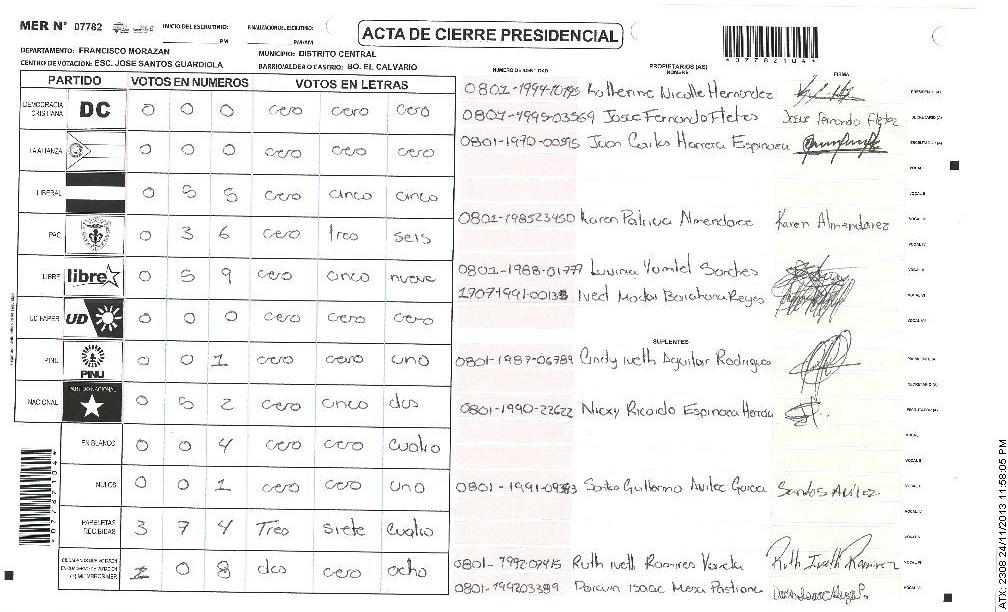 MER N° 07782 INICIO DEL ESCRUTINIO: PM FINALIZACION DEL ESCRUTINIO: PM/AM
ACTA DE CIERRE PRESIDENCIAL
*07782104*
DEPARTAMENTO: FRANCISCO MORAZAN MUNICIPIO: DISTRITO CENTRAL
CENTRO DE VOTACION: ESC. JOSE SANTOS GUARDIOLA BARRIO/ALDEA O CASTRIO: BO. EL CALVARIO
NUMERO DE IDENTIDAD PROPIETARIOS (AS) NOMBRE FIRMA
PARTIDO VOTOS EN NUMEROS VOTOS EN LETRAS
DEMOCRACIA CRISTIANA DC 0 0 0 cero cero cero
LA ALIANZA 0 0 0 cero cero cero
LIBERAL 0 5 5 cero cinco cinco
PAC 0 3 6 cero tres seis
LIBRE libre 0 5 9 cero cinco nueve
UD FAPER UD 0 0 0 cero cero cero
PINU PINU 0 0 1 cero cero uno
NACIONAL PARTIDO NACIONAL 0 5 2 cero cinco dos
EN BLANCO 0 0 4 cero cero cuatro
NULOS 0 0 1 cero cero uno
PAPELETAS RECIBIDAS 3 7 4 Tres siete cuatro
0 8 dos cero ocho
Katherine Nicolle Hernandez PRESIDENTE (A)
0801-1995-03569 Josue Fernando Fletes Josue Fernando Fletez SECRETARIO (A)
0801-1970-00595 Juan Carlos Herrera Espinoza ESCRUTADOR (A)
VOCAL I
VOCAL II
0801-198523450 Karen Patricia Almendarez Karen Almendarez VOCAL III
VOCAL IV
0801-1988-01777 VOCAL V
Ivect Barahona Reyes VOCAL VI
VOCAL VII
SUPLENTES
0801-1987-06789 Cindy Iveth Aguilar Rodriguez
SECRETARIO (A)
0801-1990-22622 Nicxy Ricardo Espinoza Herrera ESCRUTADOR (A)
VOCAL I
Santos Guillermo Avilez Garcia Santos Avilez VOCAL II
VOCAL IV
VOCAL V
Ruth Iveth Ramires Varela Ruth Iveth Ramirez VOCAL VI
0801-199203389 Darwin Isaac Meza Pastrana
*07782104*
ATX: 2308 24/11/2013 11:58:05 PM